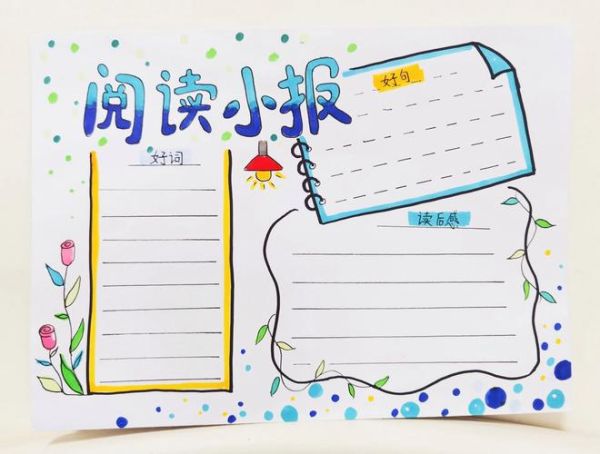 阅读小报
好句
好词
读后感